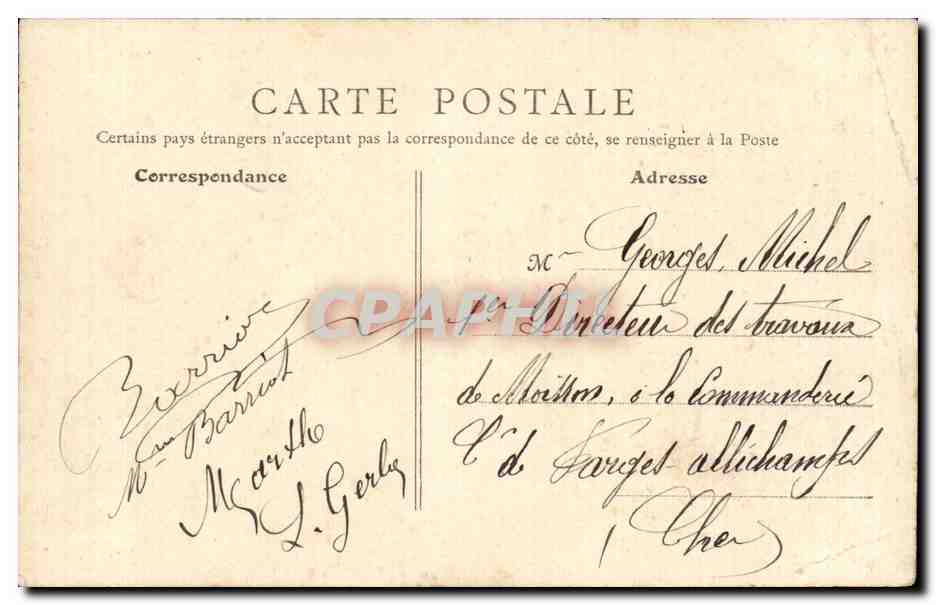 CARTE POSTALE
Certains pays étrangers n'acceptant pas la correspondance de ce côté, se renseigner à la Poste
Correspondance
Barriot
Mme Barriot
Marthe
L. Gerby
Adresse
Mr Georges Michel
1er Directeur des travaux
de Moisson, à la Commanderie
Cne de Farges allichamps
Cher
CPAPHIL